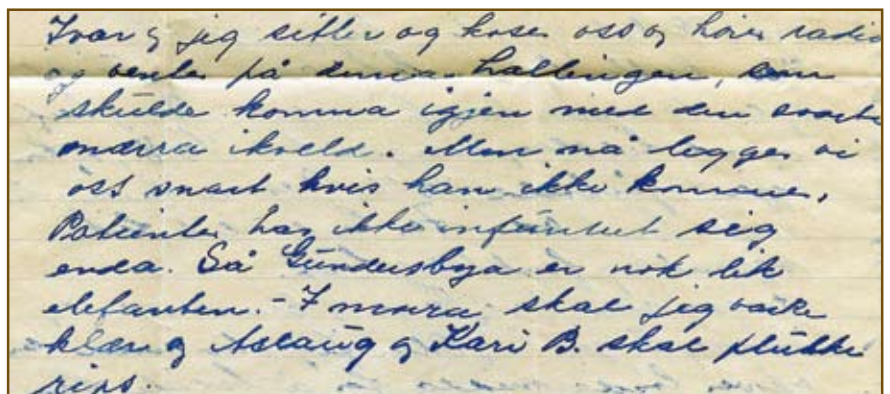 Ivar og jeg sitter og koser oss og hører radio
og venter på denna hallingen, som
skulde komma igjen med den svarte
mærra ikveld. Men nå legger vi
oss snart hvis han ikke kommer.
Patienter har ikke infunnet sig
enda. Så Gundersbya er nok lik
elefanten. - I morra skal jeg vaske
klær og Aslaug og Kari B. skal plukke
rips.